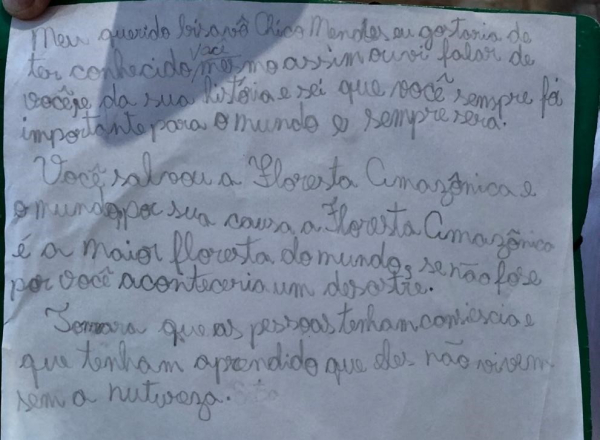 Meu querido bisavô Chico Mendes, eu gostaria de
ter conhecido você, mesmo assim ouvi falar de
você, e da sua história e sei que você sempre foi
importante para o mundo e sempre sera.
Você salvou a Floresta Amazônica e
o mundo, por sua causa a Floresta Amazônica
é a maior floresta do mundo, se não fose
por você aconteceria um desastre.
Tomara que as pessoas tenham consiescia e
que tenham aprendido que eles não vivem
sem a natureza.